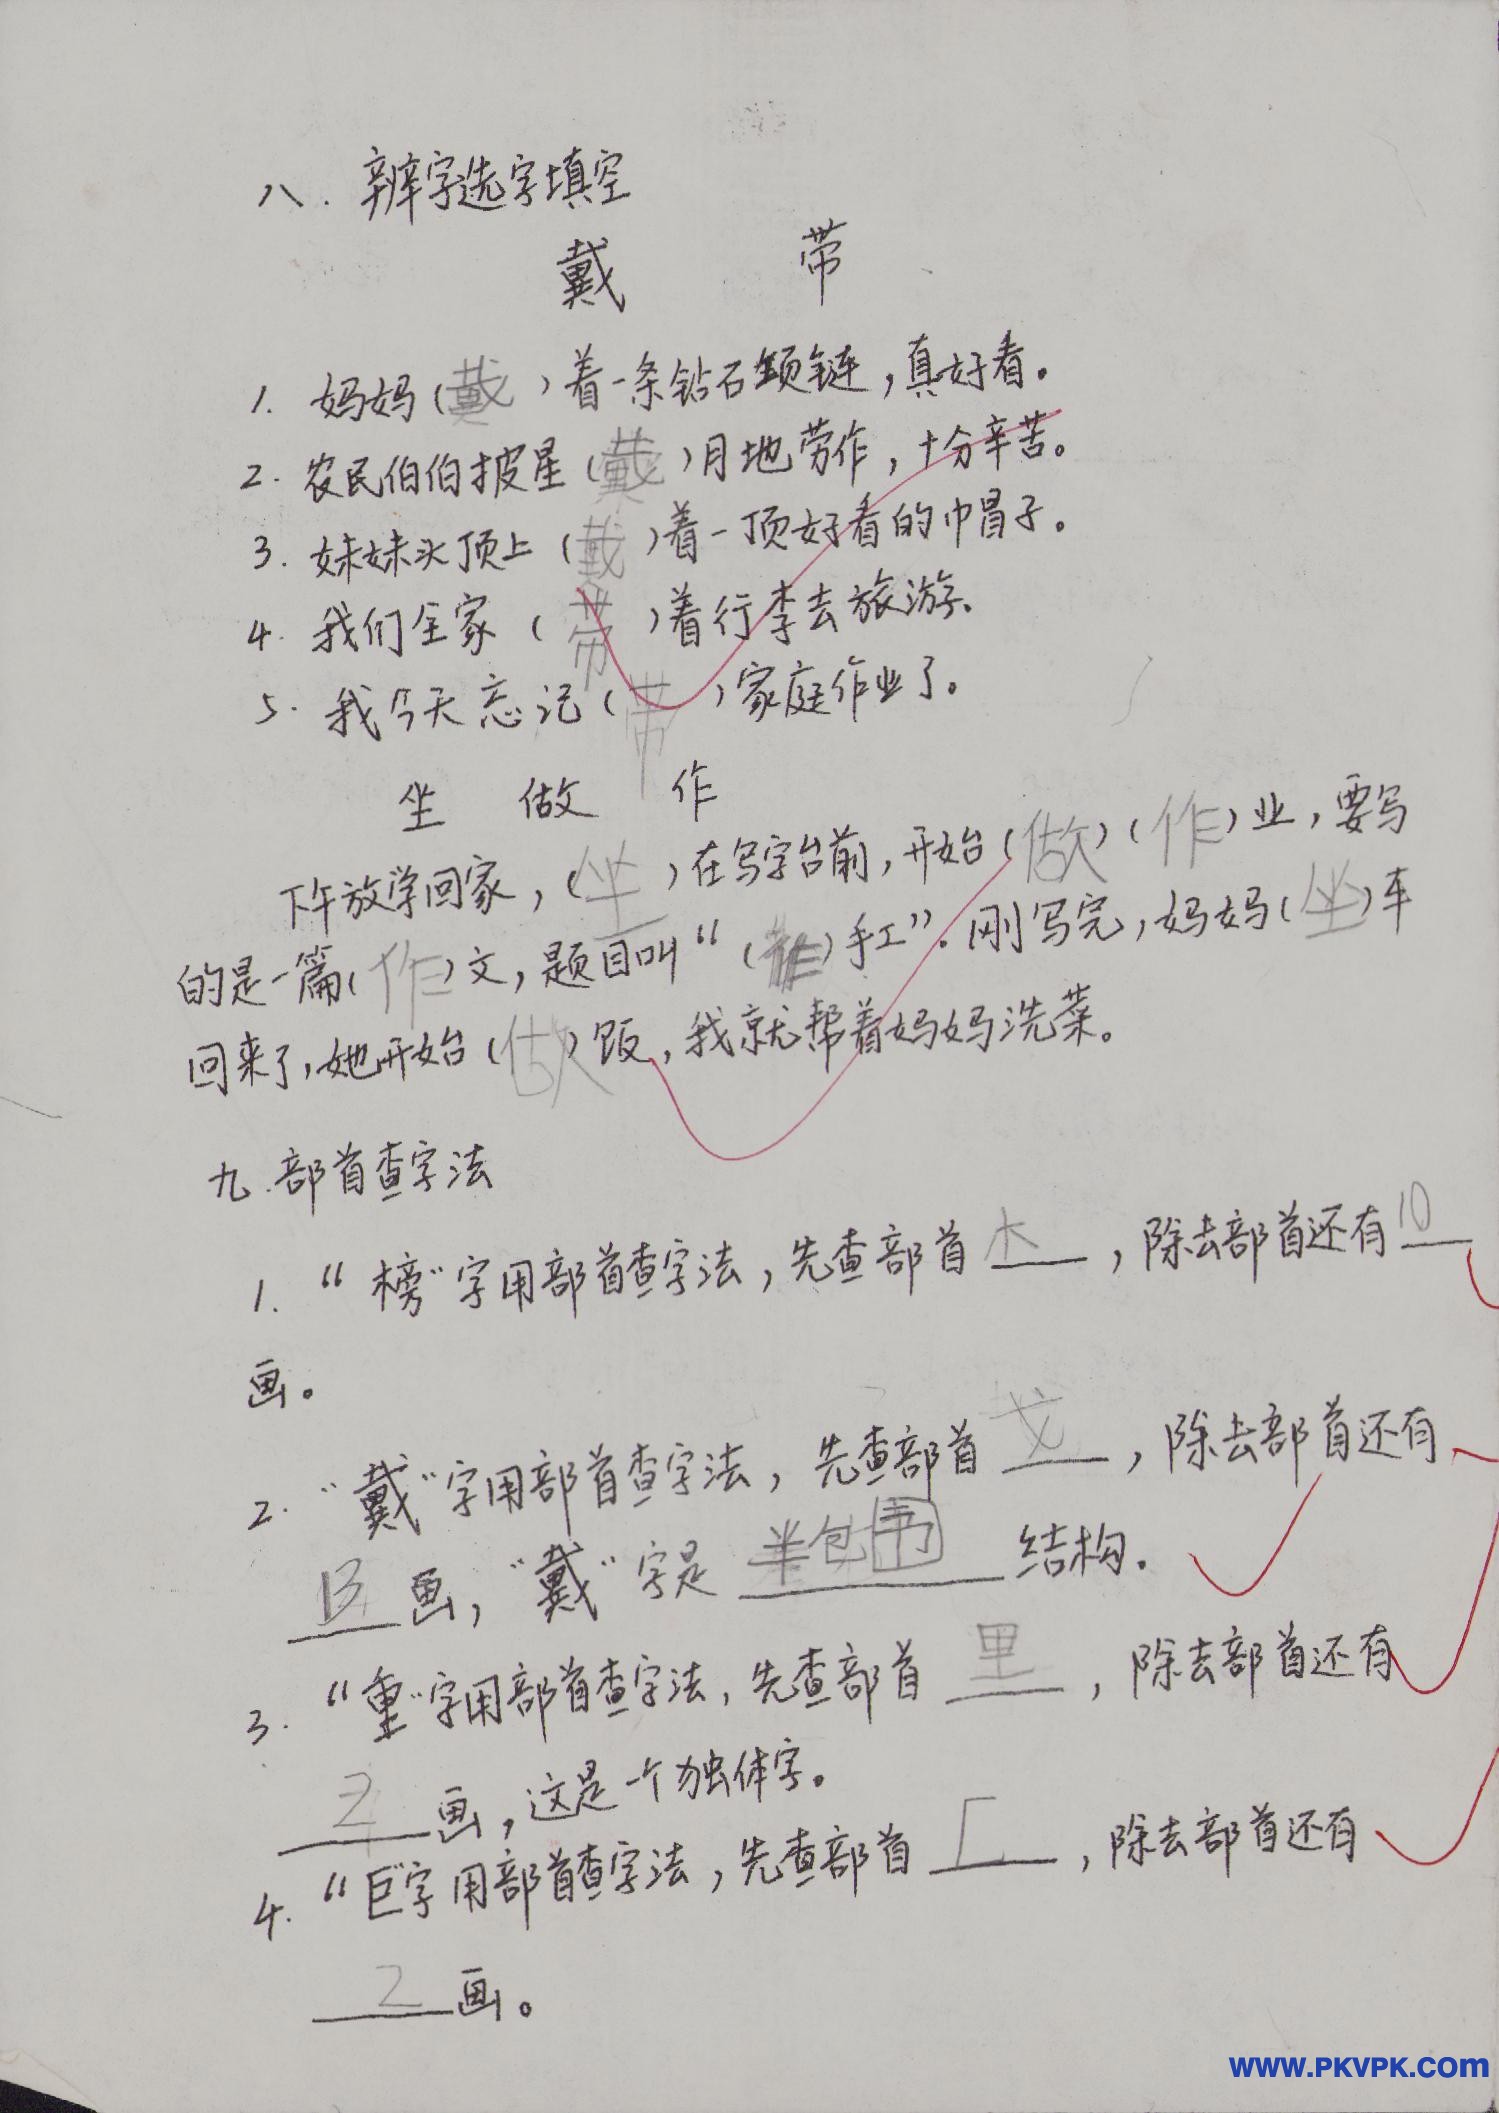 八. 辨字选字填空
戴 带
1. 妈妈(戴)着一条钻石项链,真好看。
2. 农民伯伯披星(戴)月地劳作,十分辛苦。
3. 妹妹头顶上(戴)着一顶好看的巾冒子。
4. 我们全家(带)着行李去旅游.
5. 我今天忘记(带)家庭作业了。
坐 做 作
下午放学回家,(坐)在写字台前,开始(做)(作)业,要写
的是一篇(作)文,题目叫“( )手工”. 刚写完,妈妈(坐)车
回来了,她开始(做)饭,我就帮着妈妈洗菜。
九. 部首查字法
1. “榜”字用部首查字法,先查部首木,除去部首还有10
画。
2. “戴”字用部首查字法,先查部首戈,除去部首还有
13画,“戴”字是半包围结构.
3. “重”字用部首查字法,先查部首里,除去部首还有
2画,这是一个独体字。
4. “巨”字用部首查字法,先查部首匚,除去部首还有
2画。
WWW.PKVPK.COM